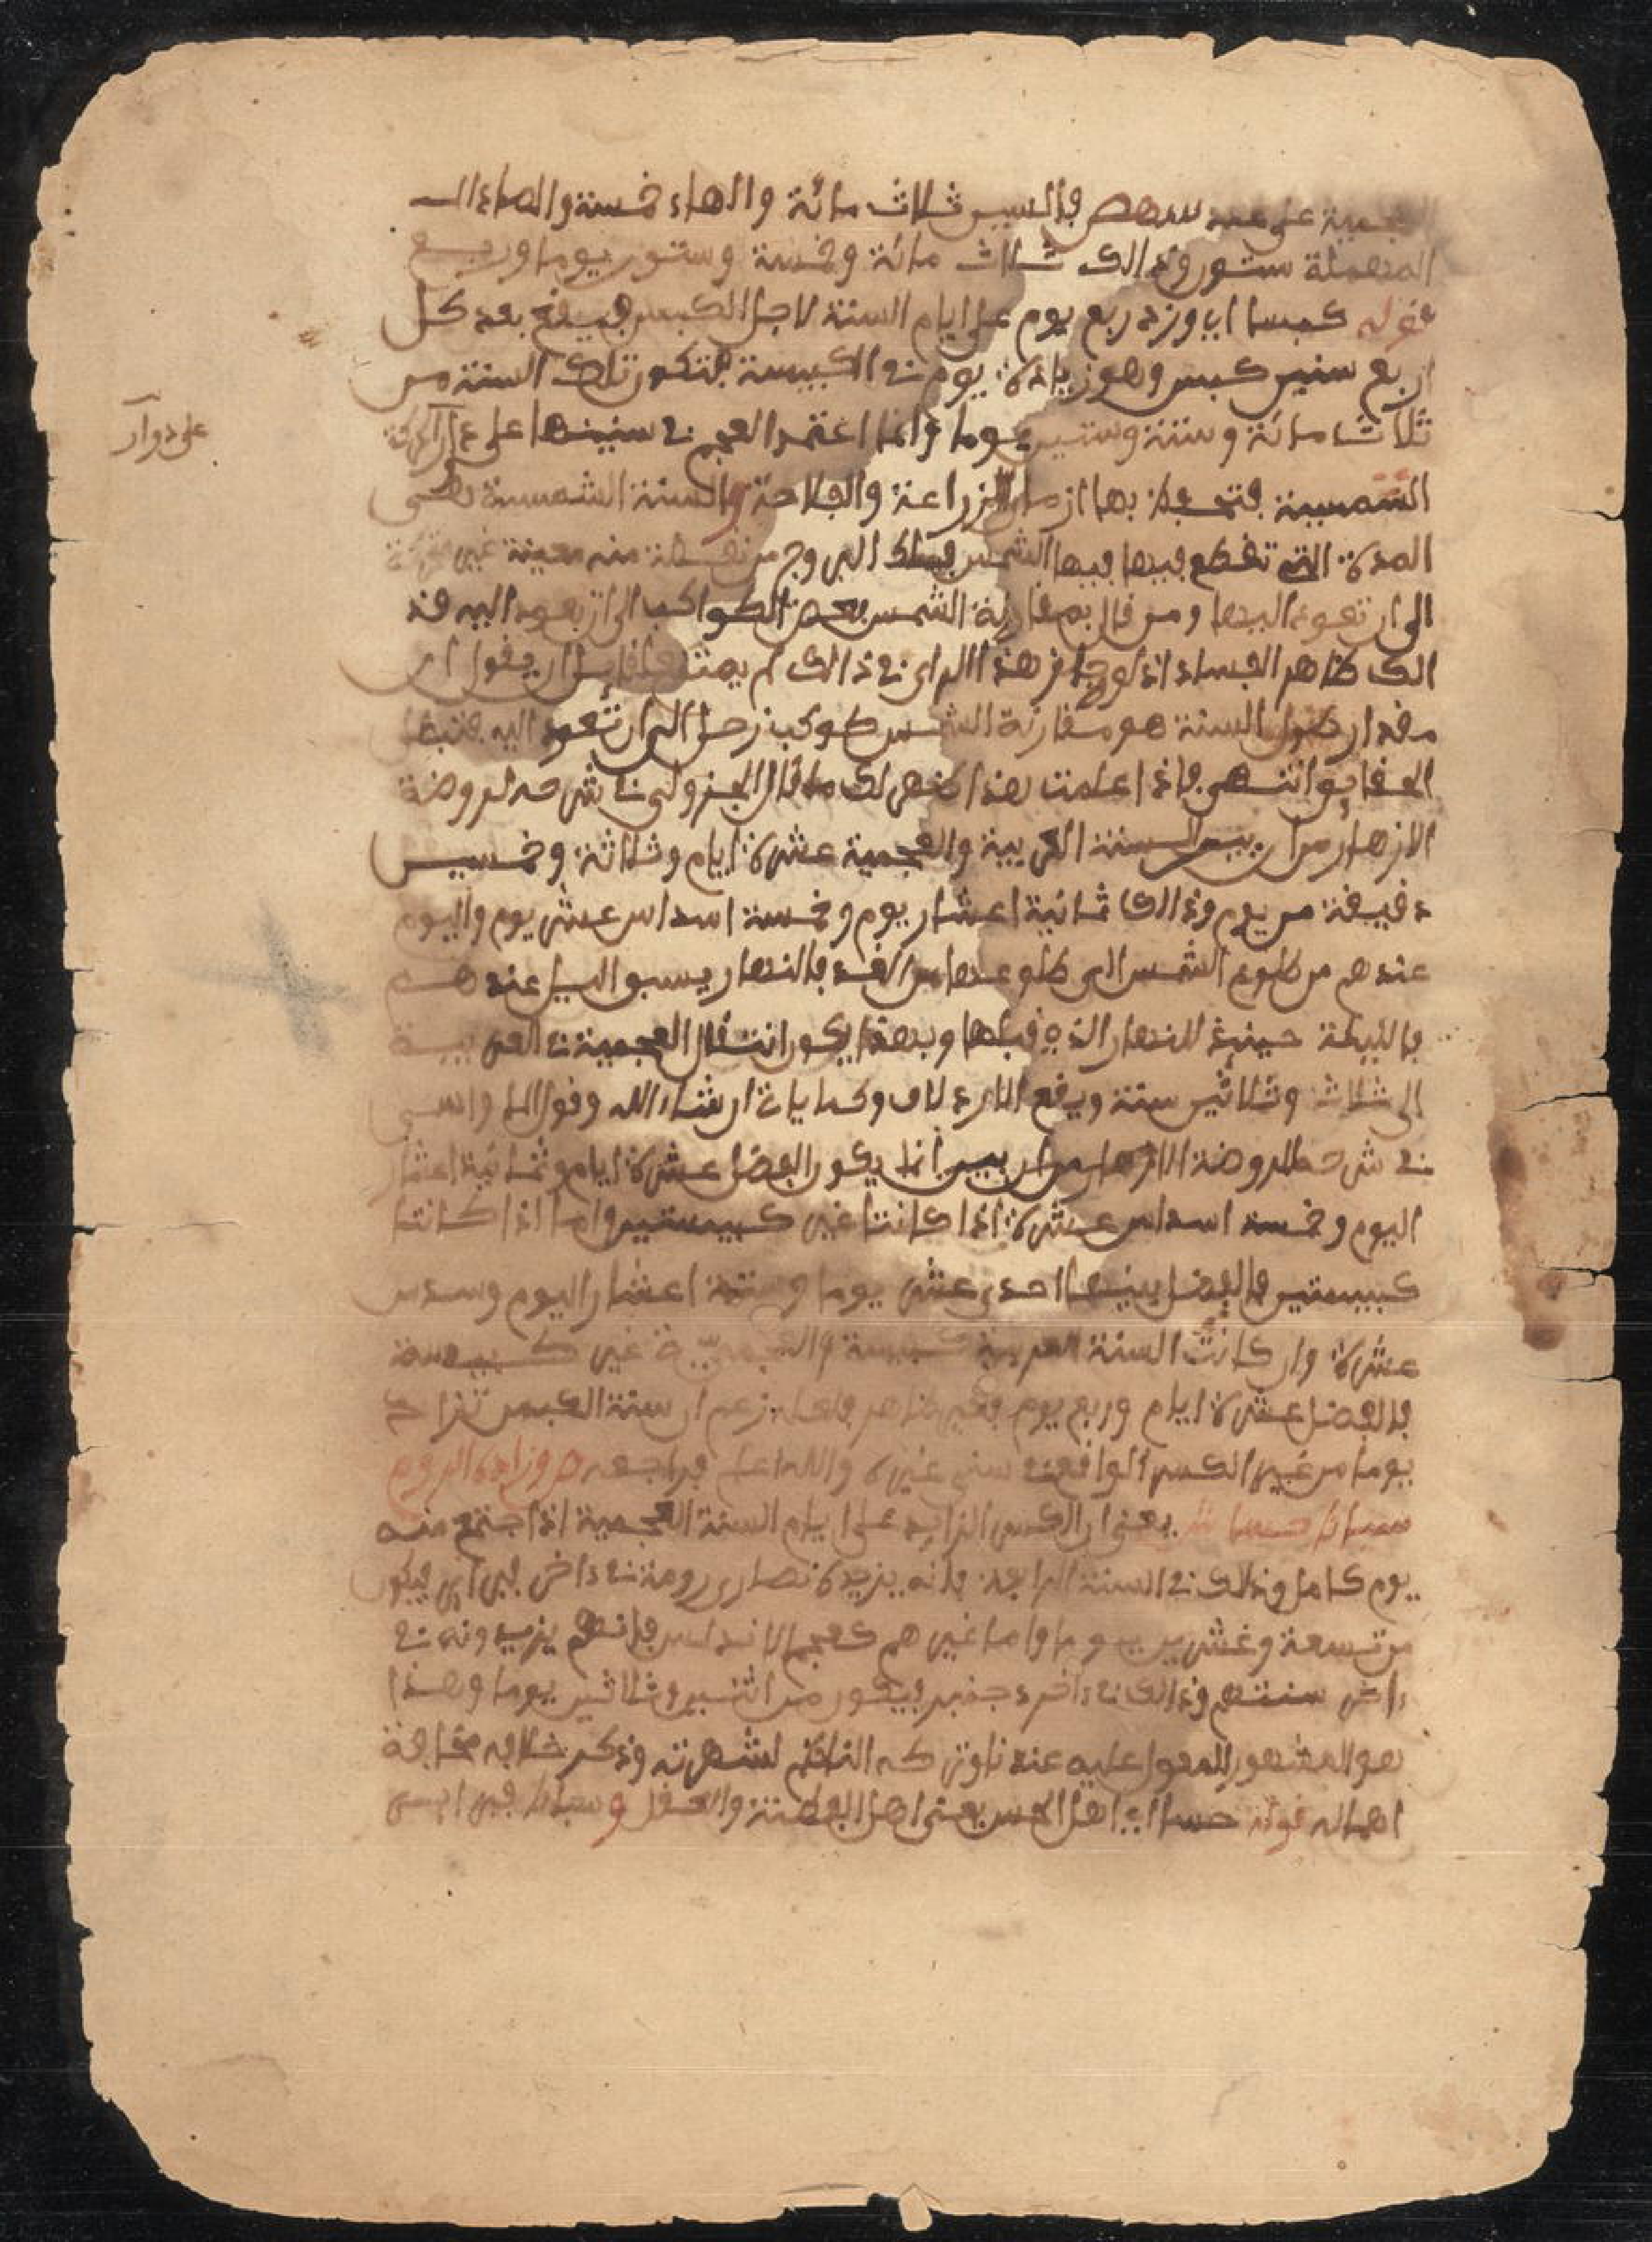 العجمية على عدد سهص فالسين ثلاث مائة والهاء خمسة والصاد ال
المهملة ستون وذالك ثلاث مائة وخمسة وستون يوما وربع
قوله كبسا اي وزد ربع يوم على ايام السنة لاجل الكبس فيقع بعد كل
اربع سنين كبس وهو زيادة يوم في الكبيسة فتكون تلك السنة من
ثلاث مائة وستة وستين يوما وانما اعتمد العجم في سنينها على
الشمسية فتحفظ بها ازمان الزراعة والفلاحة والسنة الشمسية هي
المدة التي تقطع فيها فيها الشمس فلك البروج من نقطة منه معينة غير متحركة
الى ان تعود اليها ومن قال بمقارنة الشمس بعض الكواكب الى ان يعود اليه فذ
الك ظاهر الفساد اذ لو جاز هذا الراي في ذالك لم يمتنع قايل ان يقول ان
مقدار طول السنة هو مقارنة الشمس كوكب زحل الى ان تعود اليه فتبطل
الحقايق انتهى فاذا علمت هذا ظهر لك ما قال الجزولي في شرحه لروضة
الازهار من ان بين السنة العربية والعجمية عشرة ايام وثلاثة وخمسين
دقيقة من يوم وذالك ثمانية اعشار يوم وخمسة اسداس عشر يوم واليوم
عندهم من طلوع الشمس الى طلوعها من الغد فالنهار يسبق اليل عندهم
فالليلة حينئذ للنهار الذي قبلها وبهذا يكون انتقال العجمية في العربية
الى ثلاث وثلاثين سنة ويقع الازدلاف وكما ياتي ان شاء الله وقول
في شرحه لروضة الازهار من ان بين انما يكون الفضل عشرة ايام وثمانية اعشار
اليوم وخمسة اسداس عشرة اذا كانتا غير كبيستين واما اذا كانتا
كبيستين فالفضل بينهما احدى عشر يوما وستة اعشار اليوم وسدس
عشرة وان كانت السنة العربية كبيسة والعجمية غير كبيسة
فالفضل عشرة ايام وربع يوم فغير ظاهر زعم ان سنة الكبس تزاد
يوما من غير الكبس الواقع في سني غيره والله اعلم فراجعه ص وزاده الروم
يعني ان الكبس الزايد على ايام السنة العجمية اذا اجتمع منه
يوم كامل وذلك في السنة الرابعة فانه يزيده نصارى رومة في داخر فبراير فيكون
من تسعة وعشرين يوما واما غيرهم كعجم الاندلس فانهم يزيدونه في
داخر سنتهم وذالك في داخر دجنبر فيكون من اثنين وثلاثين يوما وهذا
هو المشهور المعول عليه عند تركه الناظم لشهرته وذكر خلافه مخافة
اهماله قوله حسا اي اهل الحس يعني اهل الفطنة والعقل